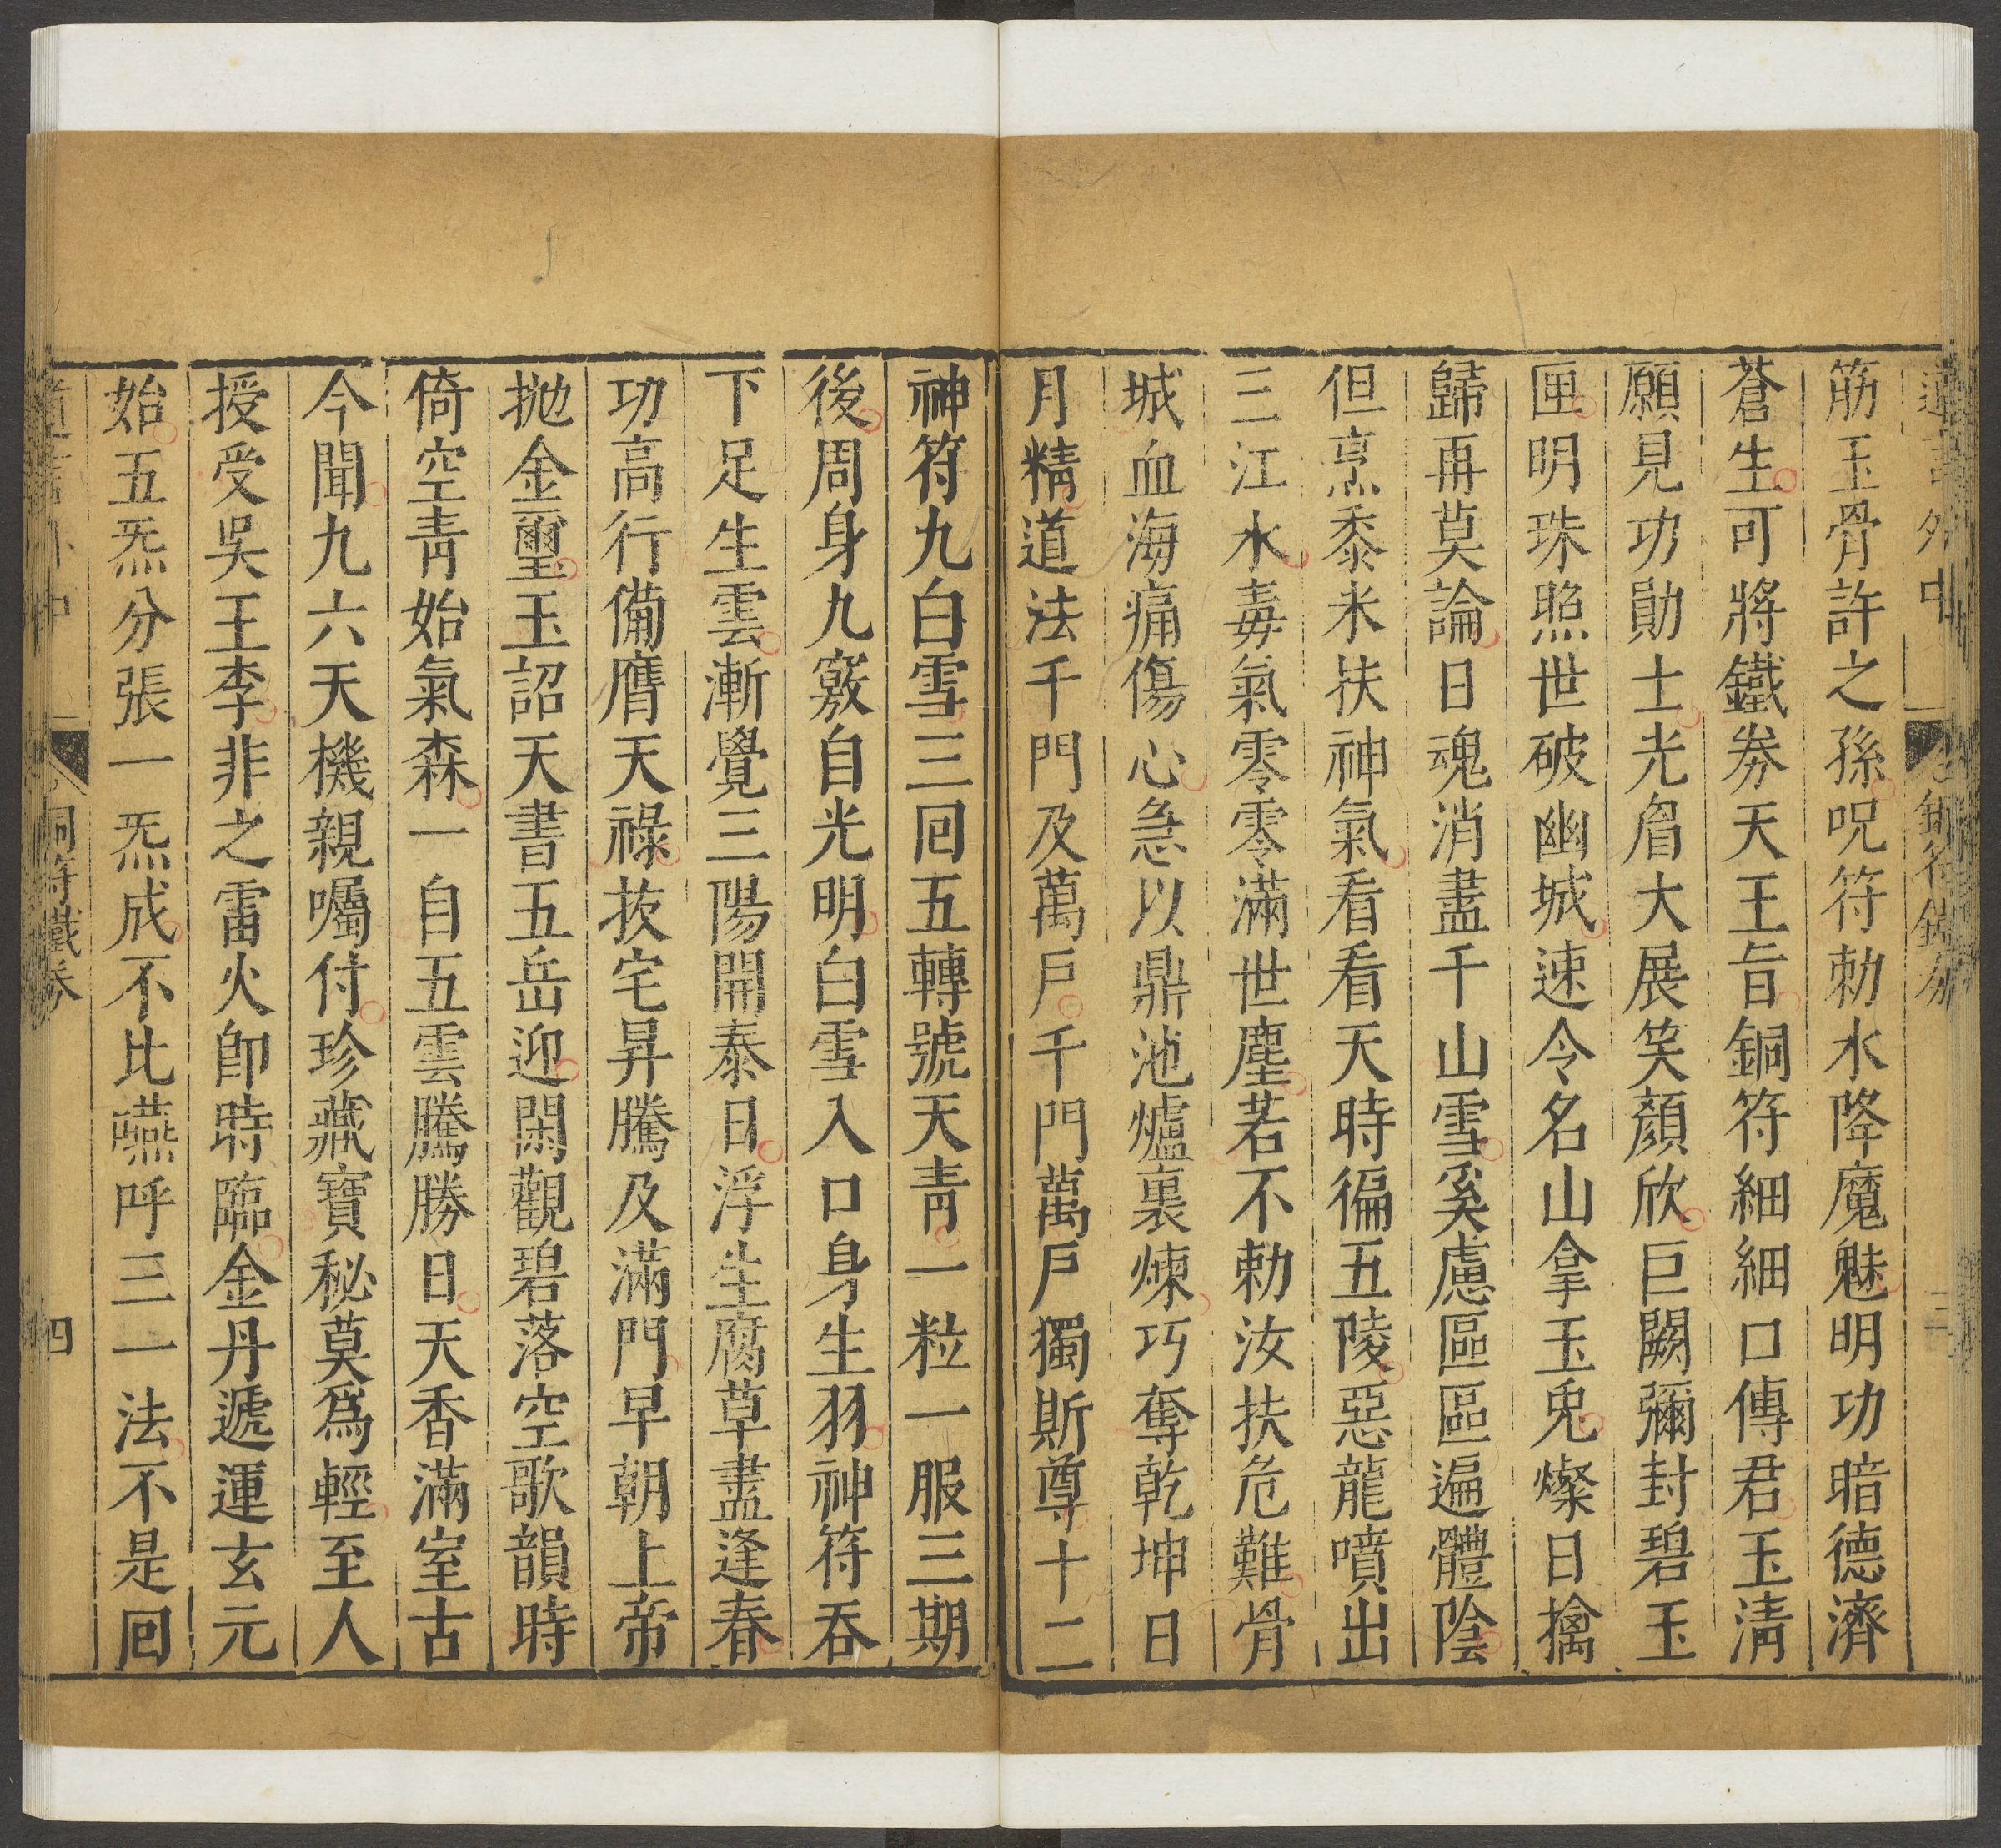 筋玉骨許之孫呪符勅水降魔魅明功暗德濟
蒼生可將鐵券天王旨銅符細細口傳君玉淸
願見功勛士光眉大展笑顏欣巨闕彌封碧玉
匣明珠照世破幽城速令名山拿玉兎燦日擒
歸再莫論日魂消盡千山雪奚慮區區遍體陰
但烹黍米扶神氣看看天時徧五陵惡龍噴出
三江水毒氣零零滿世塵若不勅汝扶危難骨
城血海痛傷心急以鼎池爐裏煉巧奪乾坤日
月精道法千門及萬戶千門萬戶獨斯尊十二
神符九白雪三回五轉號天靑一粒一服三期
後周身九竅自光明白雪入口身生羽神符吞
下足生雲漸覺三陽開泰日浮生腐草盡逢春
功高行備膺天祿拔宅昇騰及滿門早朝上帝
拋金璽玉詔天書五岳迎閑觀碧落空歌韻時
倚空靑始氣森一自五雲騰勝日天香滿室古
今聞九六天機親囑付珍藏寶秘莫爲輕至人
授受吳王李非之雷火卽時臨金丹遞運玄元
始五炁分張一炁成不比嚥呼三一法不是回
銅符鐵券
四